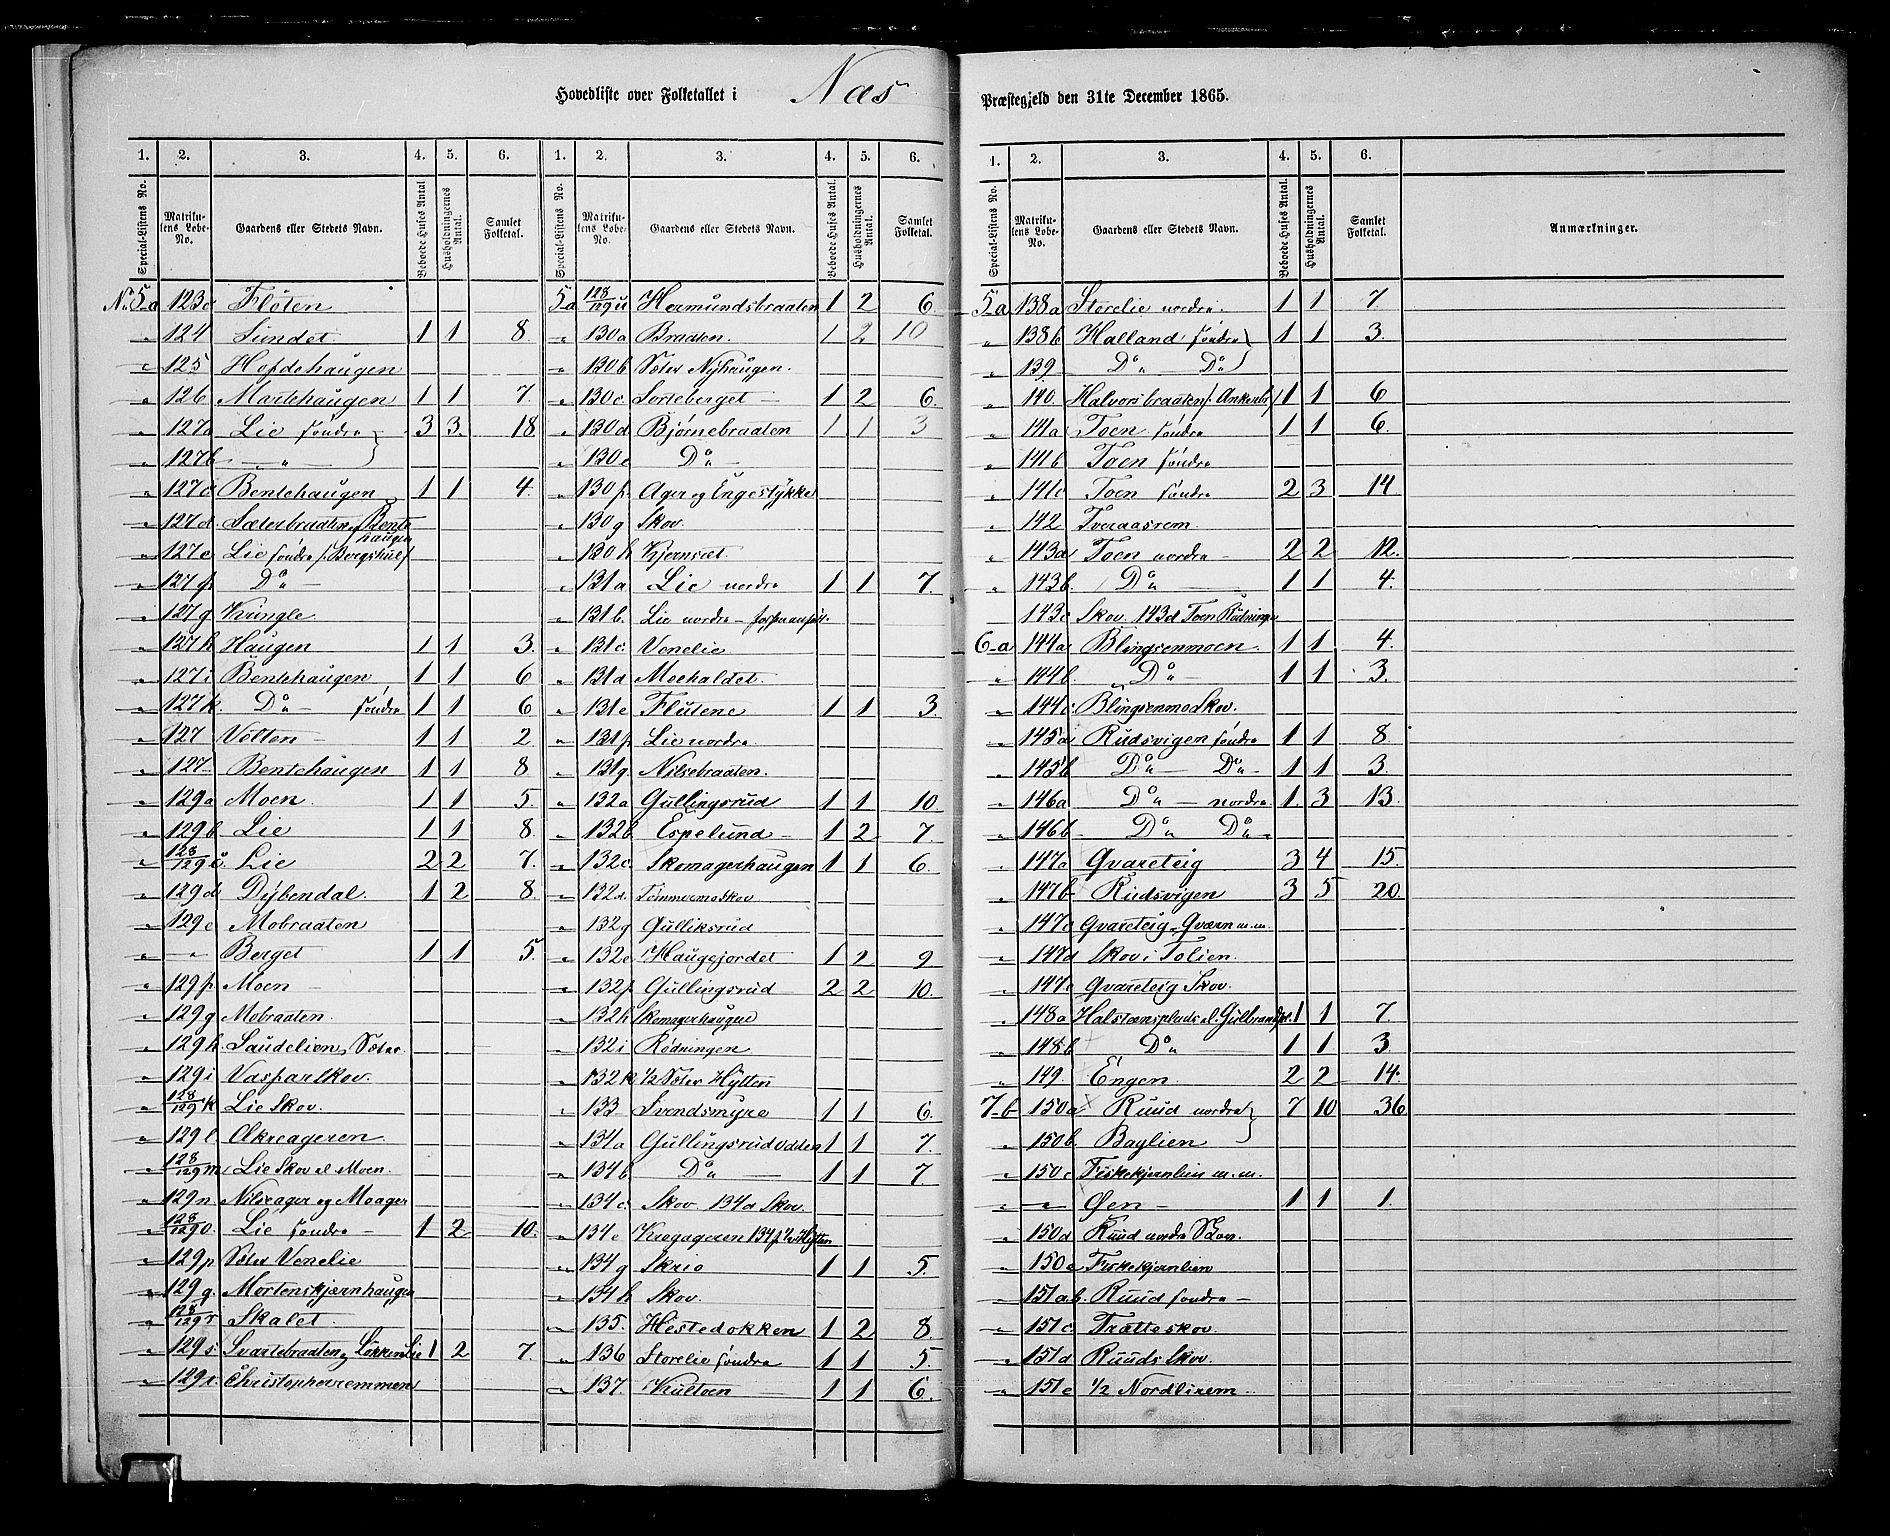 Hovedliste over Folketallet i Næs
Præstegjeld den 31te December 1865.
1. 2. 3. 4. 5. 6.
Special-Listens No. Matrikulens Løbe-No. Gaardens eller Stedets Navn. Beboede Huses Antal Husholdningernes Antal. Samlet Folketal.
No. 5a 123c Flöten
" 124 Sundet 1 1 8
" 125 Hofdehaugen
" 126 Martehaugen 1 1 7.
" 127a Lie söndre 3 3. 18
" 127b — " —
" 127c Bentehaugen 1 1 4.
" 127d. Sæterbraaten og Bentehaugen
" 127e Lie söndre /: Bergshul /
" 127f Do
" 127g Kringle
" 127h Haugen 1 1 3.
" 127i Bentehaugen 1 1 6
" 127k. Do — söndre 1 1 6
" 127 Votten — 1 1 2.
" 127- Bentehaugen 1 1 8
" 129a Moen. 1 1 5.
" 129b Lie 1 1 8.
" 128/129c. Lie 2 2 7.
" 129d Dybendal. 1 2 8.
" 129e Mobraaten
" — " — Berget 1 1 5.
" 129f Moen
" 129g Mobraaten.
" 129h Saudelien, Sæter.
" 129i Vasparskov.
" 128/129k Lie Skov.
" 129l Ækreageren
" 128/129m Lie Skov el Moen.
" 129n. Nilseager og Moager
" 128/129o. Lie söndre — 1 2 10.
" 129p Sæter Venelie
" 129q. Mortenskjærnhaugen
" 128/129r Skalet.
" 129s Svartebraaten og Lökkenlie 1 2 7.
" 129t Christopherremmen
1. 2. 3. 4. 5. 6.
Special-Listens No. Matrikulens Løbe-No. Gaardens eller Stedets Navn. Beboede Huses Antal. Husholdningernes Antal. Samlet Folketal.
5a 128/129u Hermundsbraaten 1 2 6
" 130a Braaten. 1 2 10
" 130b Sæter Nyhaugen.
" 130c. Sorteberget — 1 2 6.
" 130d Bjørnebraaten 1 1 3
" 130e Do —
" 130f Ager og Engestykke
" 130g Skov.
" 130h Kjernset.
" 131a Lie nordre 1 1 7.
" 131b. Lie nordre —
" 131c. Venelie
" 131d Moehaldet.
" 131e Flutene 1 1 3.
" 131f Lie nordre.
" 131g. Nilsebraaten.
" 132a Gullingsrud 1 1 10.
" 132b Espelund — 1 2 7.
" 132c. Skomagerhaugen 1 1 6.
" 132d. Tömmermoskov
" 132g Gulliksrud
" 132e Haugejordet 1 2 9
" 132f Gullingsrud 2 2 10.
" 132h Skomagerhaugen
" 132i Rødningen
" 132k 1/2 Sæter Hytten
" 133- Svendsmyre 1 1 6.
" 134a Gullingsrud Odden 1 1 7.
" 134b Do — 1 1 7
" 134c. Skov 134d Skov.
" 134e Krogageren 134f 1/2 Hytten
" 134g Skrio 1 1 5.
" 134h Skov.
" 135. Hestedokken 1 2 8.
" 136 Storelie söndre 1 1 5.
" 137. Kultoen 1 1 6.
1. 2. 3. 4. 5. 6.
Special-Listens No. Matrikulens Løbe-No. Gaardens eller Stedets Navn. Beboede Huses Antal. Husholdningernes Antal. Samlet Folketal. Anmærkninger.
5a 138a Storelie nordre 1 1 7.
" 138b Halland söndre 1 1 3.
" 139 Do — Do
" 140. Halvorsbraaten /: Ankerbr / 1 1 6
" 141a Toen söndre 1 1 6.
" 141b Toen söndre
" 141c Toen söndre 2 3 14
" 142 Tveraasrem
" 143a Toen nordre — 2 2 12.
" 143b. Do — 1 1 4.
143c Skov 143d Toen Rudninger
6-a 144a Blingsenmoen. 1 1 4.
" 144b. Do — 1 1 3.
" 144c. Blingsenmo Skov.
" 145a Rudsvigen söndre 1 1 8
" 145b Do — Do — 1 1 3.
" 146a Do — nordre 1. 3 13.
" 146b Do Do —
" 147a Qvareteig 3 4 15.
" 147b Rudsvigen 3 5 20.
" 147c Qvareteig Qværn m.m.
" 147d Skov i Tolien.
" 147e Qvareteig Skov.
" 148a Halsteensplads el. Gulbrandspl. 1 1 7.
" 148b Do — 1 1 3.
" 149. Engen. 2 2 14.
7-b 150a Ruud nordre 7 10 36
" 150b. Baglien
" 150c Fiskekjernlien m.m.
" — " — Øen — 1 1 1.
" 150d Ruud nordre Skov.
" 150e Fiskekjernlien
" 151a b. Ruud söndre —
" 151c. Trætteskov.
" 151d Ruuds Skov.
" 151e 1/2 Nordlirem